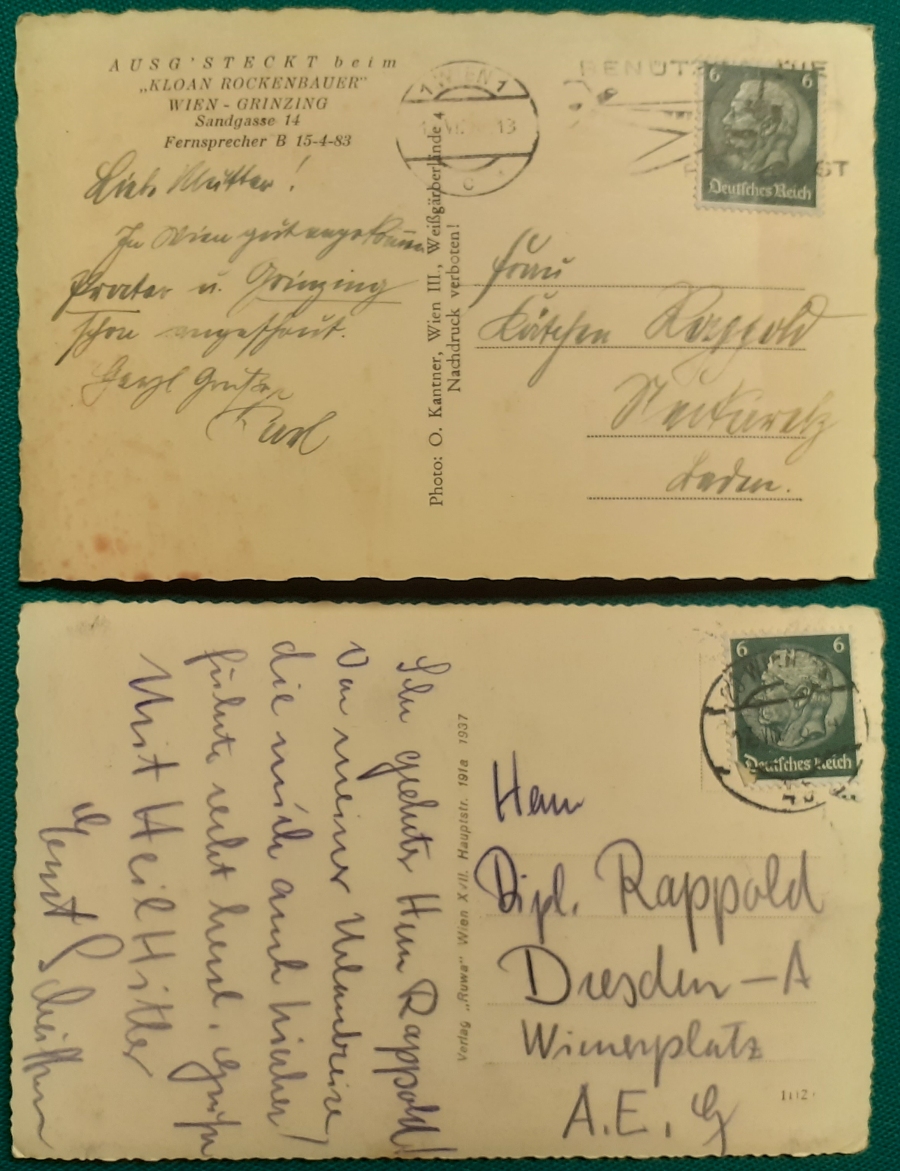 AUSG'STECKT beim
„KLOAN ROCKENBAUER"
WIEN - GRINZING
Sandgasse 14
Fernsprecher B 15-4-83
WIEN
1 1
13
C
BENÜTZ DIE
ST
6 6
Deutsches Reich
Liebe Mutter!
In Wien gut angekommen
Prater u. Grinzing
schon angeschaut.
Herzl Grüße
Karl
Photo: O. Kantner, Wien III., Weißgärberlände 4
Nachdruck verboten!
Frau
Kätchen Rappold
Baden.
6 6
WIEN
Deutsches Reich
Sehr geehrter Herr Rappold!
Von meiner Urlaubreise,
die mich auch hierher
führte recht herzl. Grüße
Mit Heil Hitler
Ernst
Verlag „Ruwa" Wien XVII. Hauptstr. 191a 1937
Herrn
Dipl. Rappold
Dresden - A
Wienerplatz
A.E.G